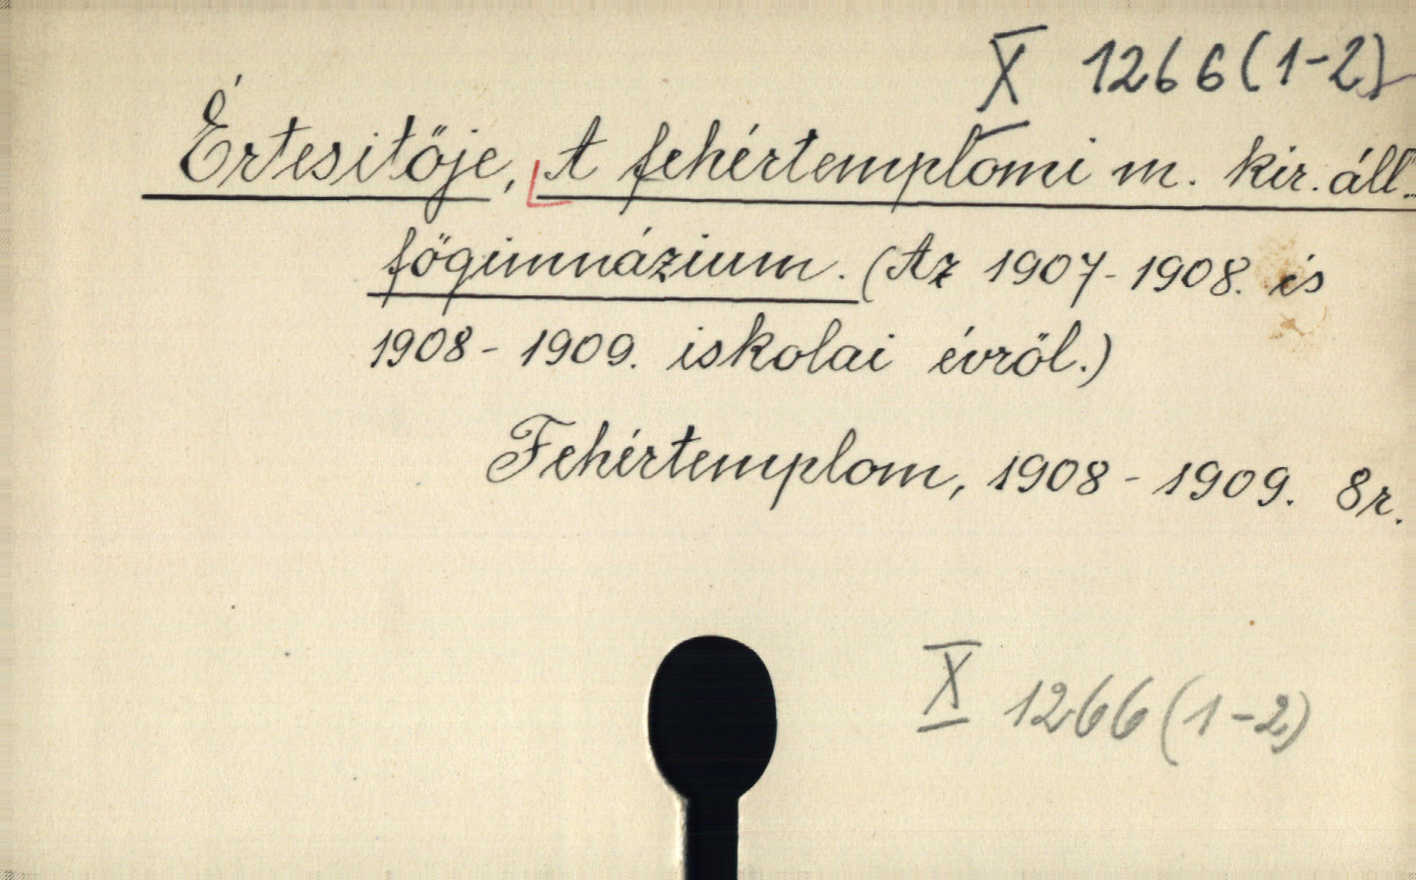 X 1266(1-2)
Értesitöje, A fehértemplomi m. kir. áll.
fögimnázium. (Az 1907-1908. és
1908-1909. iskolai évröl.)
Fehértemplom, 1908-1909. 8r.
X 1266(1-2)